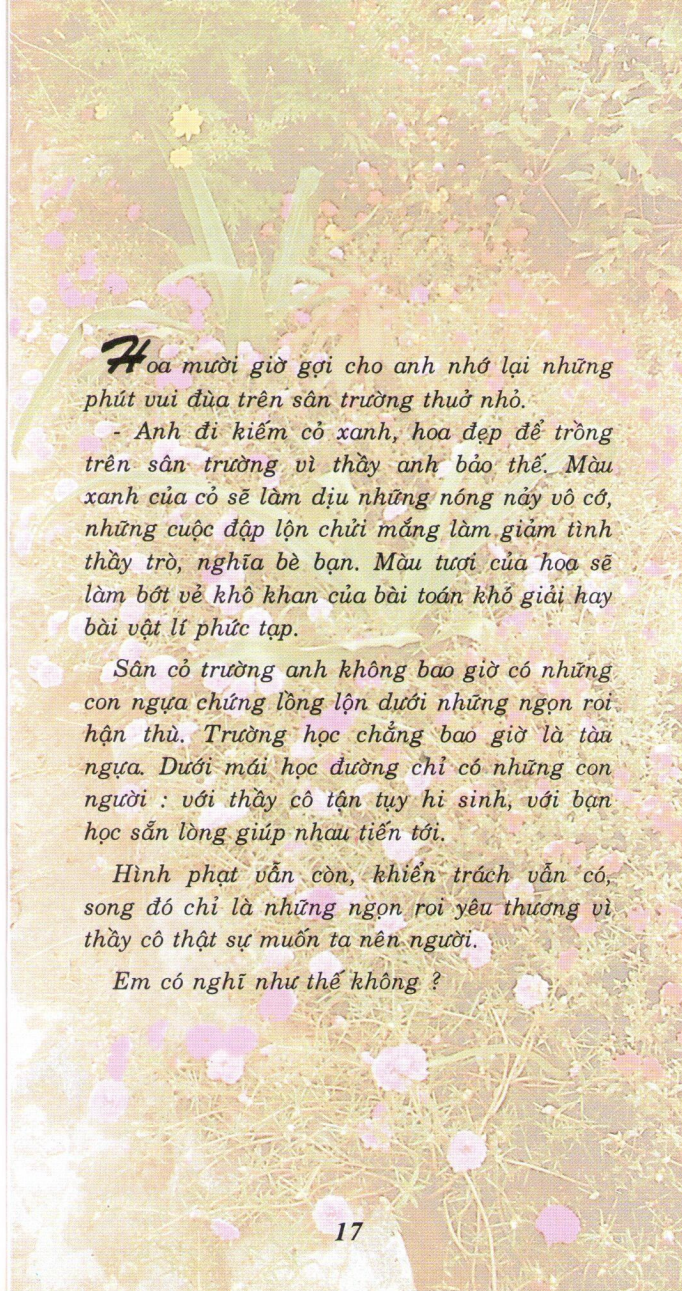 Hoa mười giờ gợi cho anh nhớ lại những
phút vui đùa trên sân trường thuở nhỏ.
- Anh đi kiếm cỏ xanh, hoa đẹp để trồng
trên sân trường vì thầy anh bảo thế. Màu
xanh của cỏ sẽ làm dịu những nóng nảy vô cớ,
những cuộc đập lộn chửi mắng làm giảm tình
thầy trò, nghĩa bè bạn. Màu tươi của hoa sẽ
làm bớt vẻ khô khan của bài toán khó giải hay
bài vật lí phức tạp.
Sân cỏ trường anh không bao giờ có những
con ngựa chứng lồng lộn dưới những ngọn roi
hận thù. Trường học chẳng bao giờ là tàu
ngựa. Dưới mái học đường chỉ có những con
người : với thầy cô tận tụy hi sinh, với bạn
học sẵn lòng giúp nhau tiến tới.
Hình phạt vẫn còn, khiển trách vẫn có,
song đó chỉ là những ngọn roi yêu thương vì
thầy cô thật sự muốn ta nên người.
Em có nghĩ như thế không ?
17